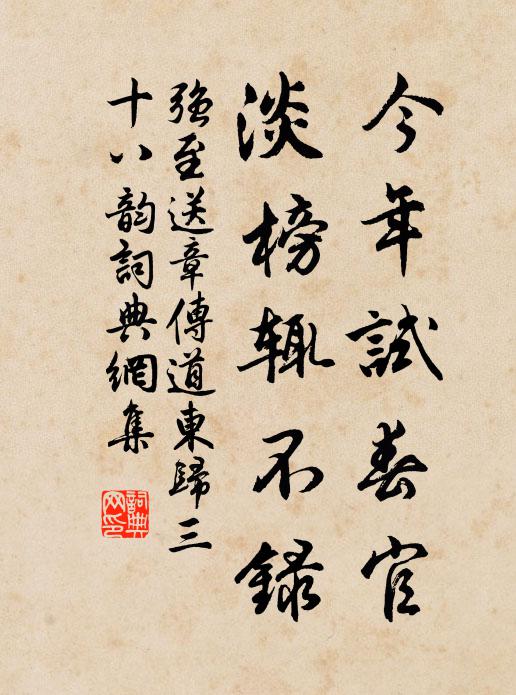 今年試春官
淡榜輒不錄
强至送章傳道東歸三
十八韵詞典網集
詞典
网印